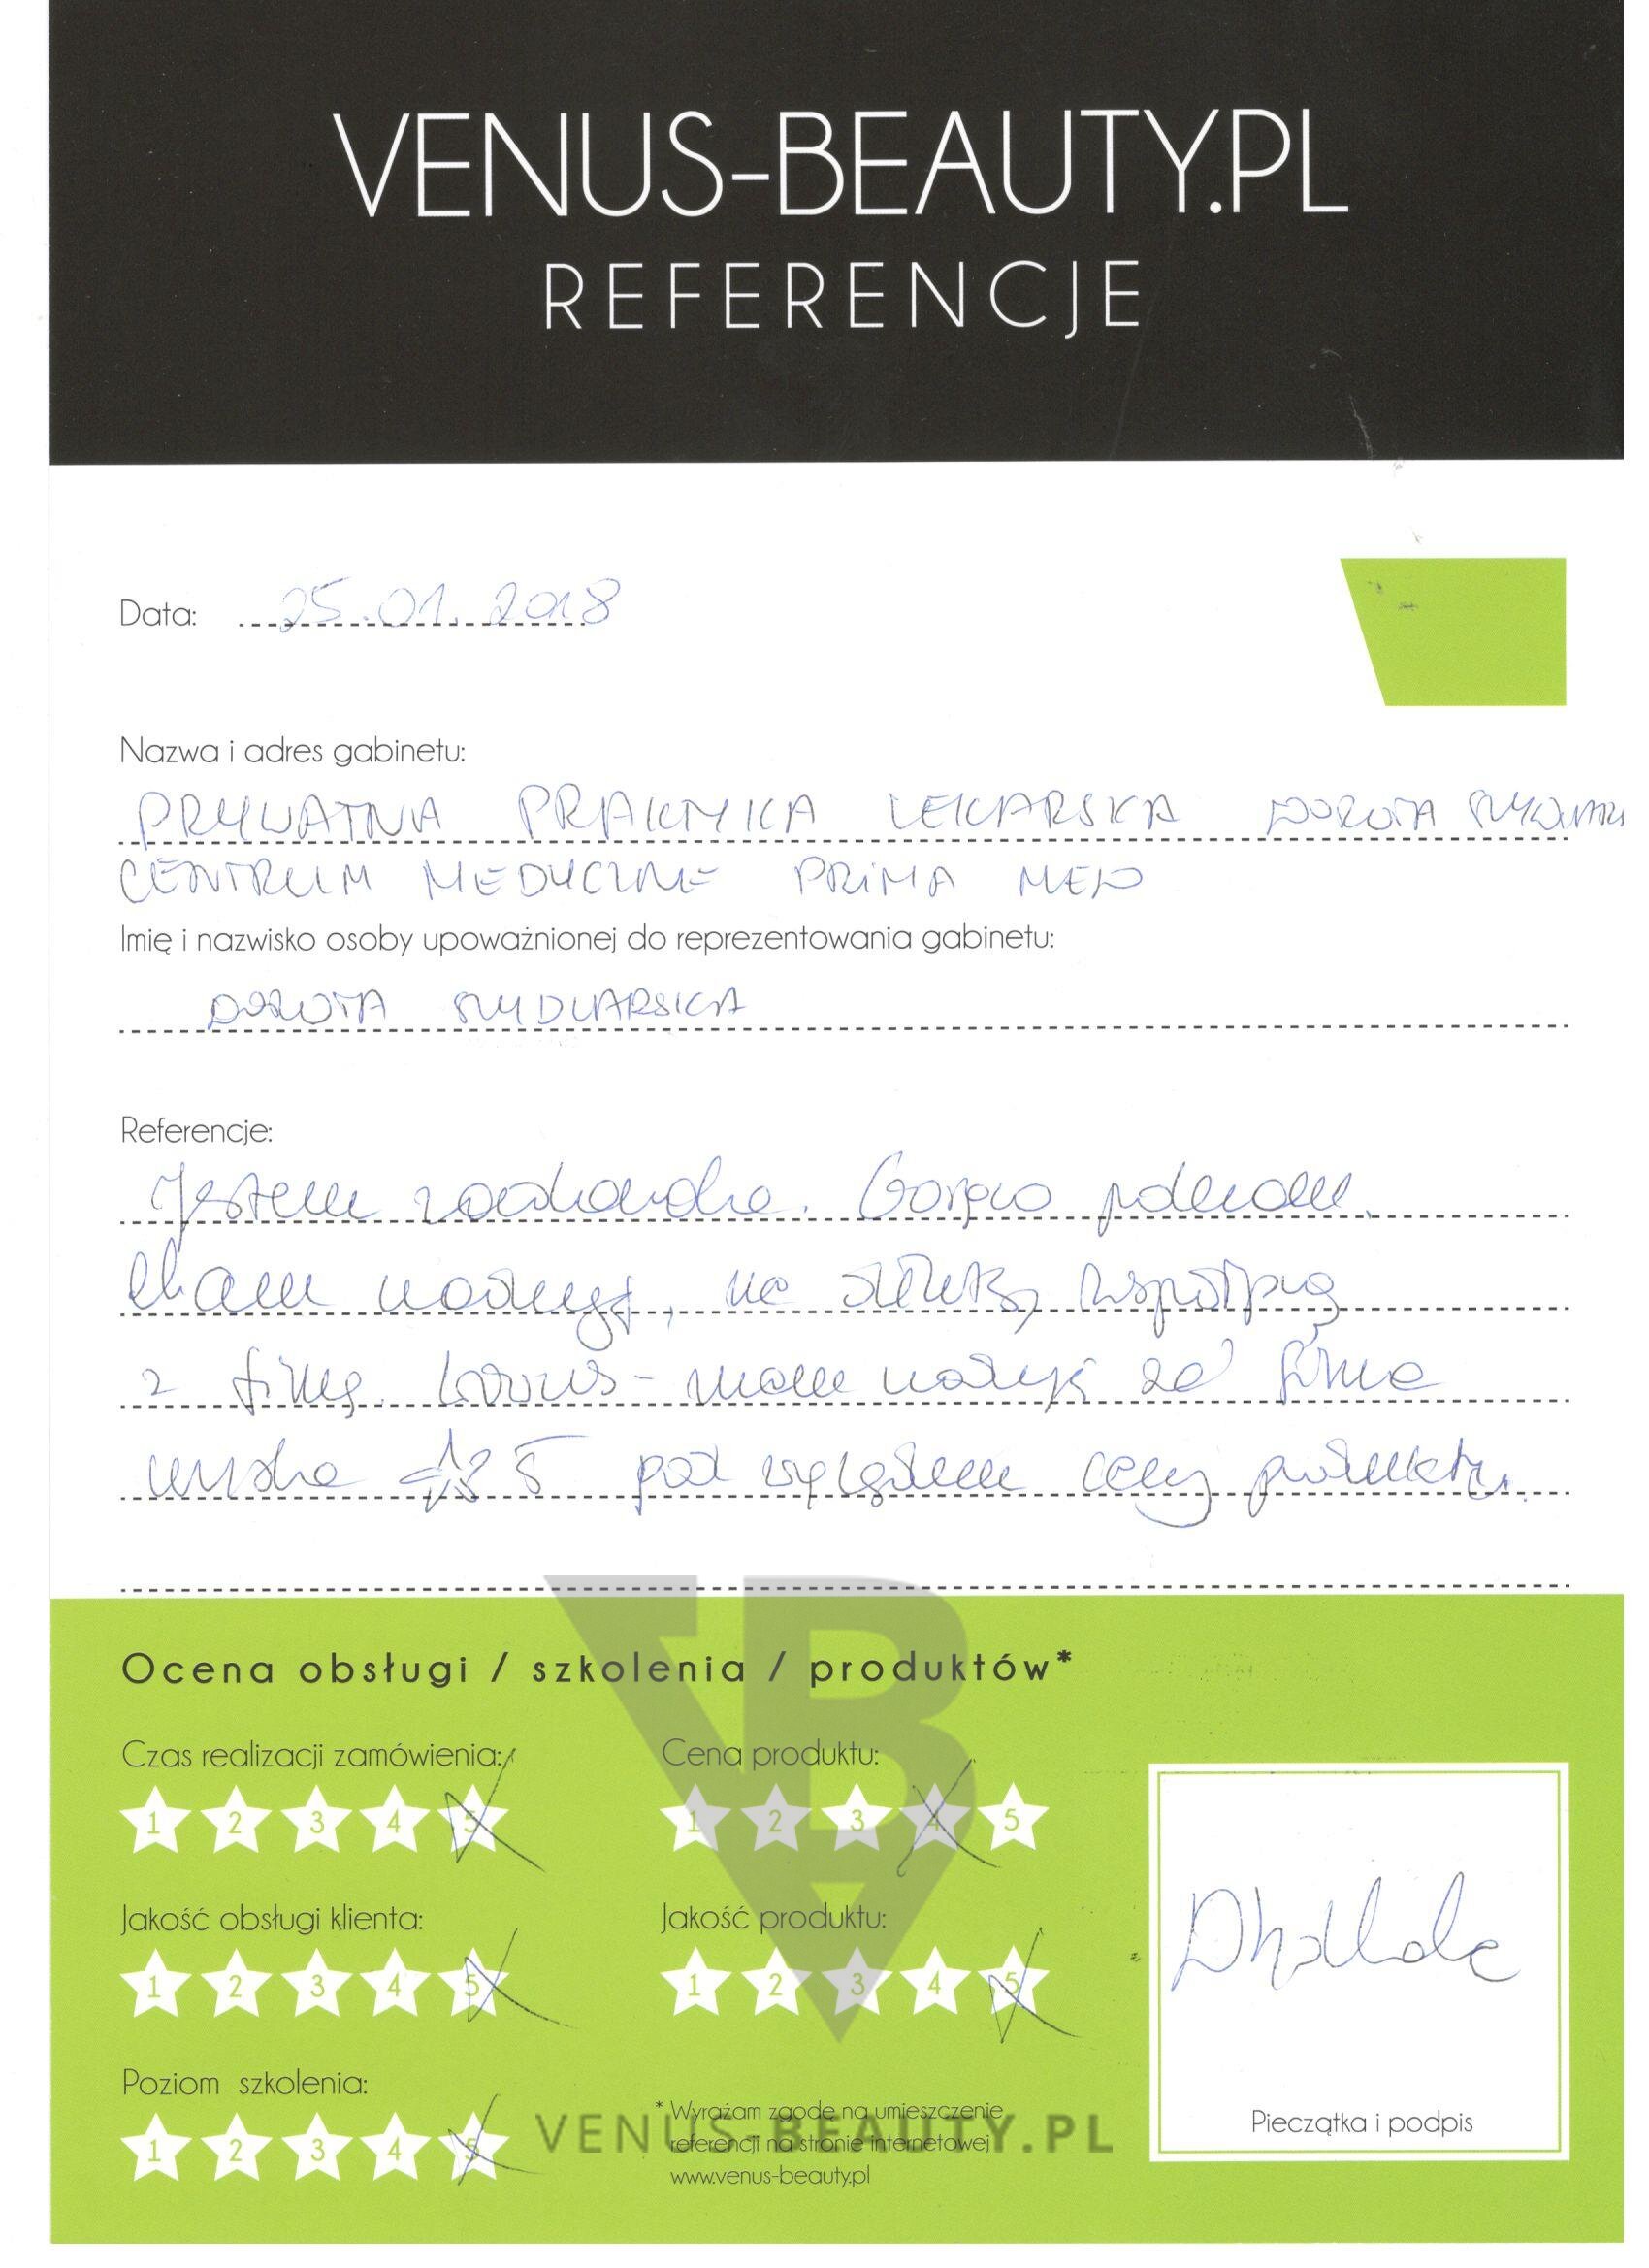 VENUS-BEAUTY.PL
REFERENCJE
Data: 25.01.2018
Nazwa i adres gabinetu:
PRYWATNA PRAKTYKA LEKARSKA DOROTA
CENTRUM MEDYCZNE PRIMA MED
Imię i nazwisko osoby upoważnionej do reprezentowania gabinetu:
DOROTA
Referencje:
Jestem zachwycona. Gorąco polecam.
Mam nadzieję, na
z firmą Venus - mam nadzieję że firma
pod względem ceny produktu.
Ocena obsługi / szkolenia / produktów*
Czas realizacji zamówienia:
1 2 3 4 5
Cena produktu:
1 2 3 4 5
Jakość obsługi klienta:
1 2 3 4 5
Jakość produktu:
1 2 3 4 5
Poziom szkolenia:
1 2 3 4 5
* Wyrażam zgodę na umieszczenie
referencji na stronie internetowej
www.venus-beauty.pl
VENUS-BEAUTY.PL
Pieczątka i podpis